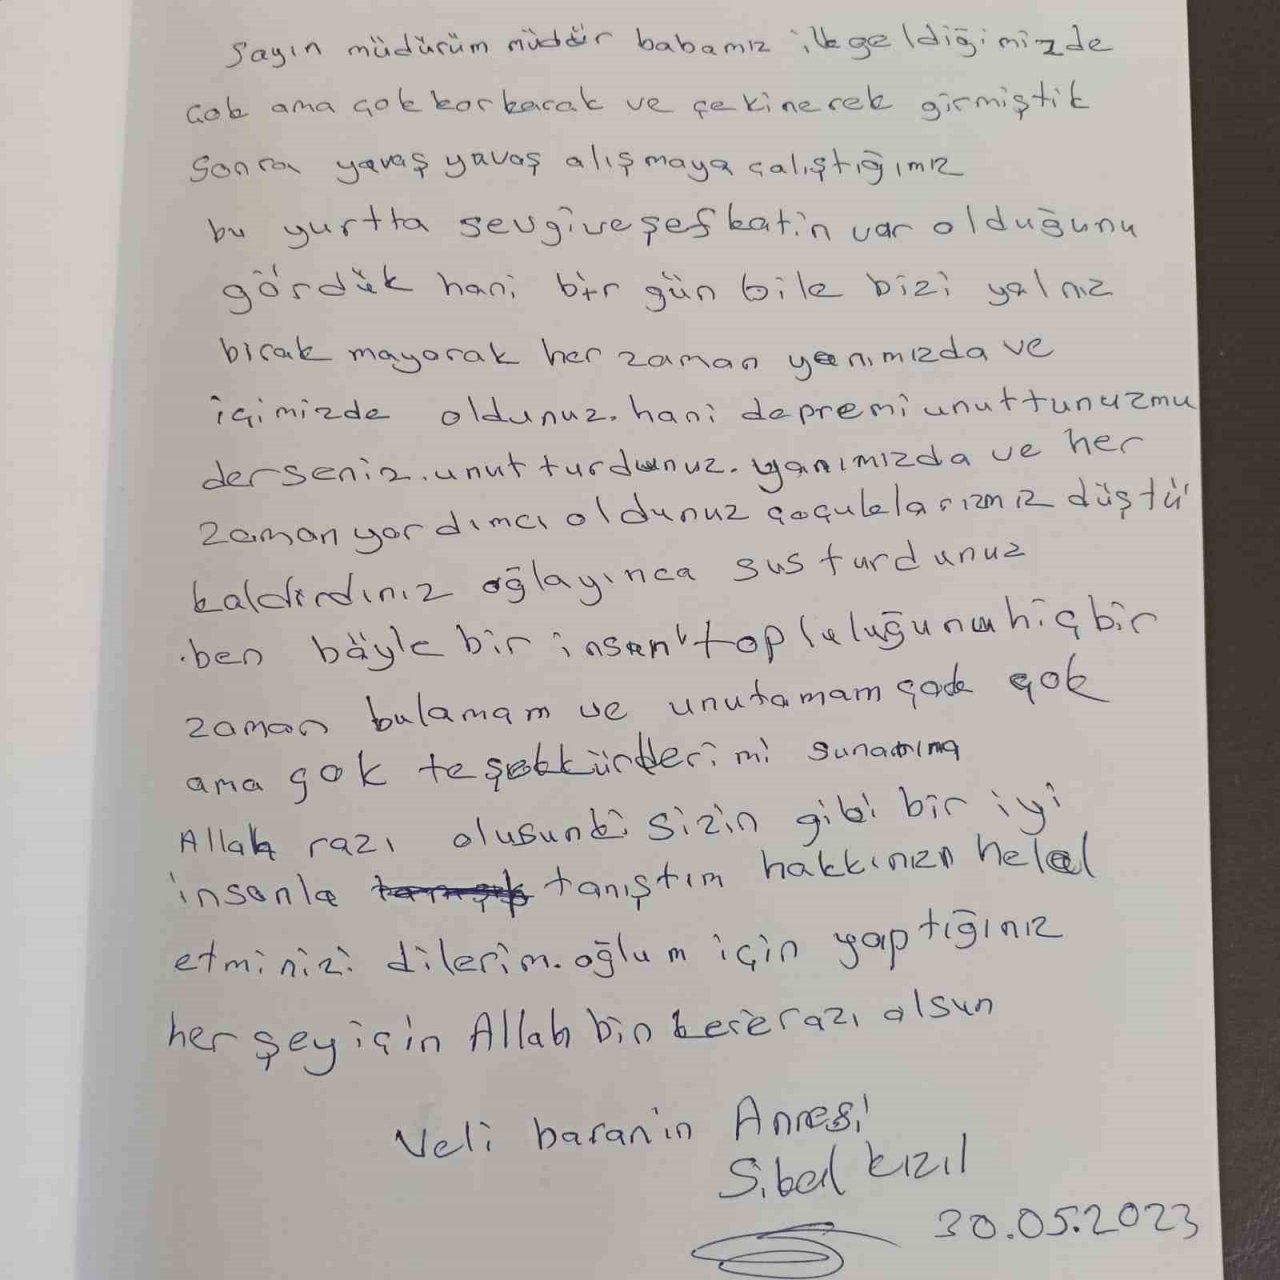 Sayın müdürüm müdür babamız ilk geldiğimizde
çok ama çok korkarak ve çekinerek girmiştik
Sonra yavaş yavaş alışmaya çalıştığımız
bu yurtta sevgi ve şefkatin var olduğunu
gördük hani bir gün bile bizi yalnız
bırakmayarak her zaman yanımızda ve
içimizde oldunuz. hani depremi unuttunuzmu
derseniz. unutturdunuz. yanımızda ve her
zaman yardımcı oldunuz çoçuklarızmız düştü
kaldırdınız ağlayınca susturdunuz
.ben böyle bir insan topluluğunu hiçbir
zaman bulamam ve unutamam çok çok
ama çok teşekkürlerimi
Allah razı olusunki sizin gibi bir iyi
insanla tanıştım hakkınızn helal
etminizi dilerim. oğlum için yaptığınız
her şey için Allah bin kere razı olsun
Veli baran'ın Annesi
Sibel kızıl
30.05.2023